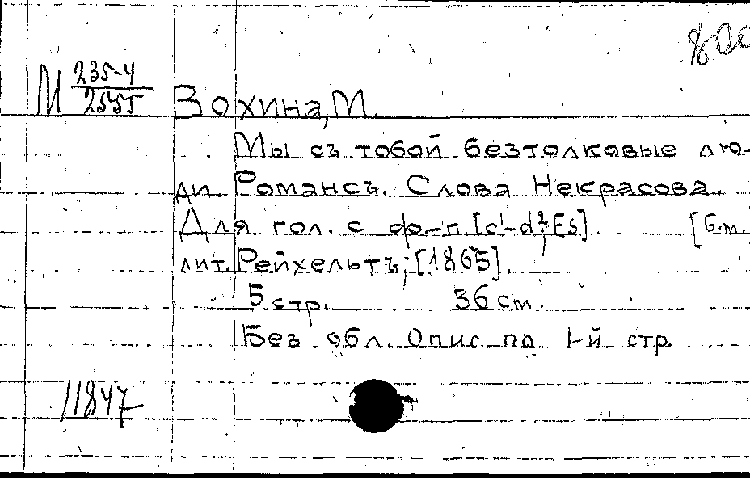 800
М 235-4
2555
Зохина, М.
Мы съ тобой безтолковые лю-
ди. Романсъ. Слова Некрасова.
Для гол. с ф-п. [c¹-d²; Es]. [Б.м.
лит. Рейхельтъ, [1865].
5 стр. 36 см.
Без обл. Опис. по 1-й стр.
11847